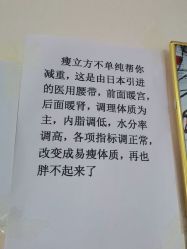 瘦立方不单纯帮你
减重，这是由日本引进
的医用腰带，前面暖宫，
后面暖肾，调理体质为
主，内脂调低，水分率
调高，各项指标调正常，
改变成易瘦体质，再也
胖不起来了